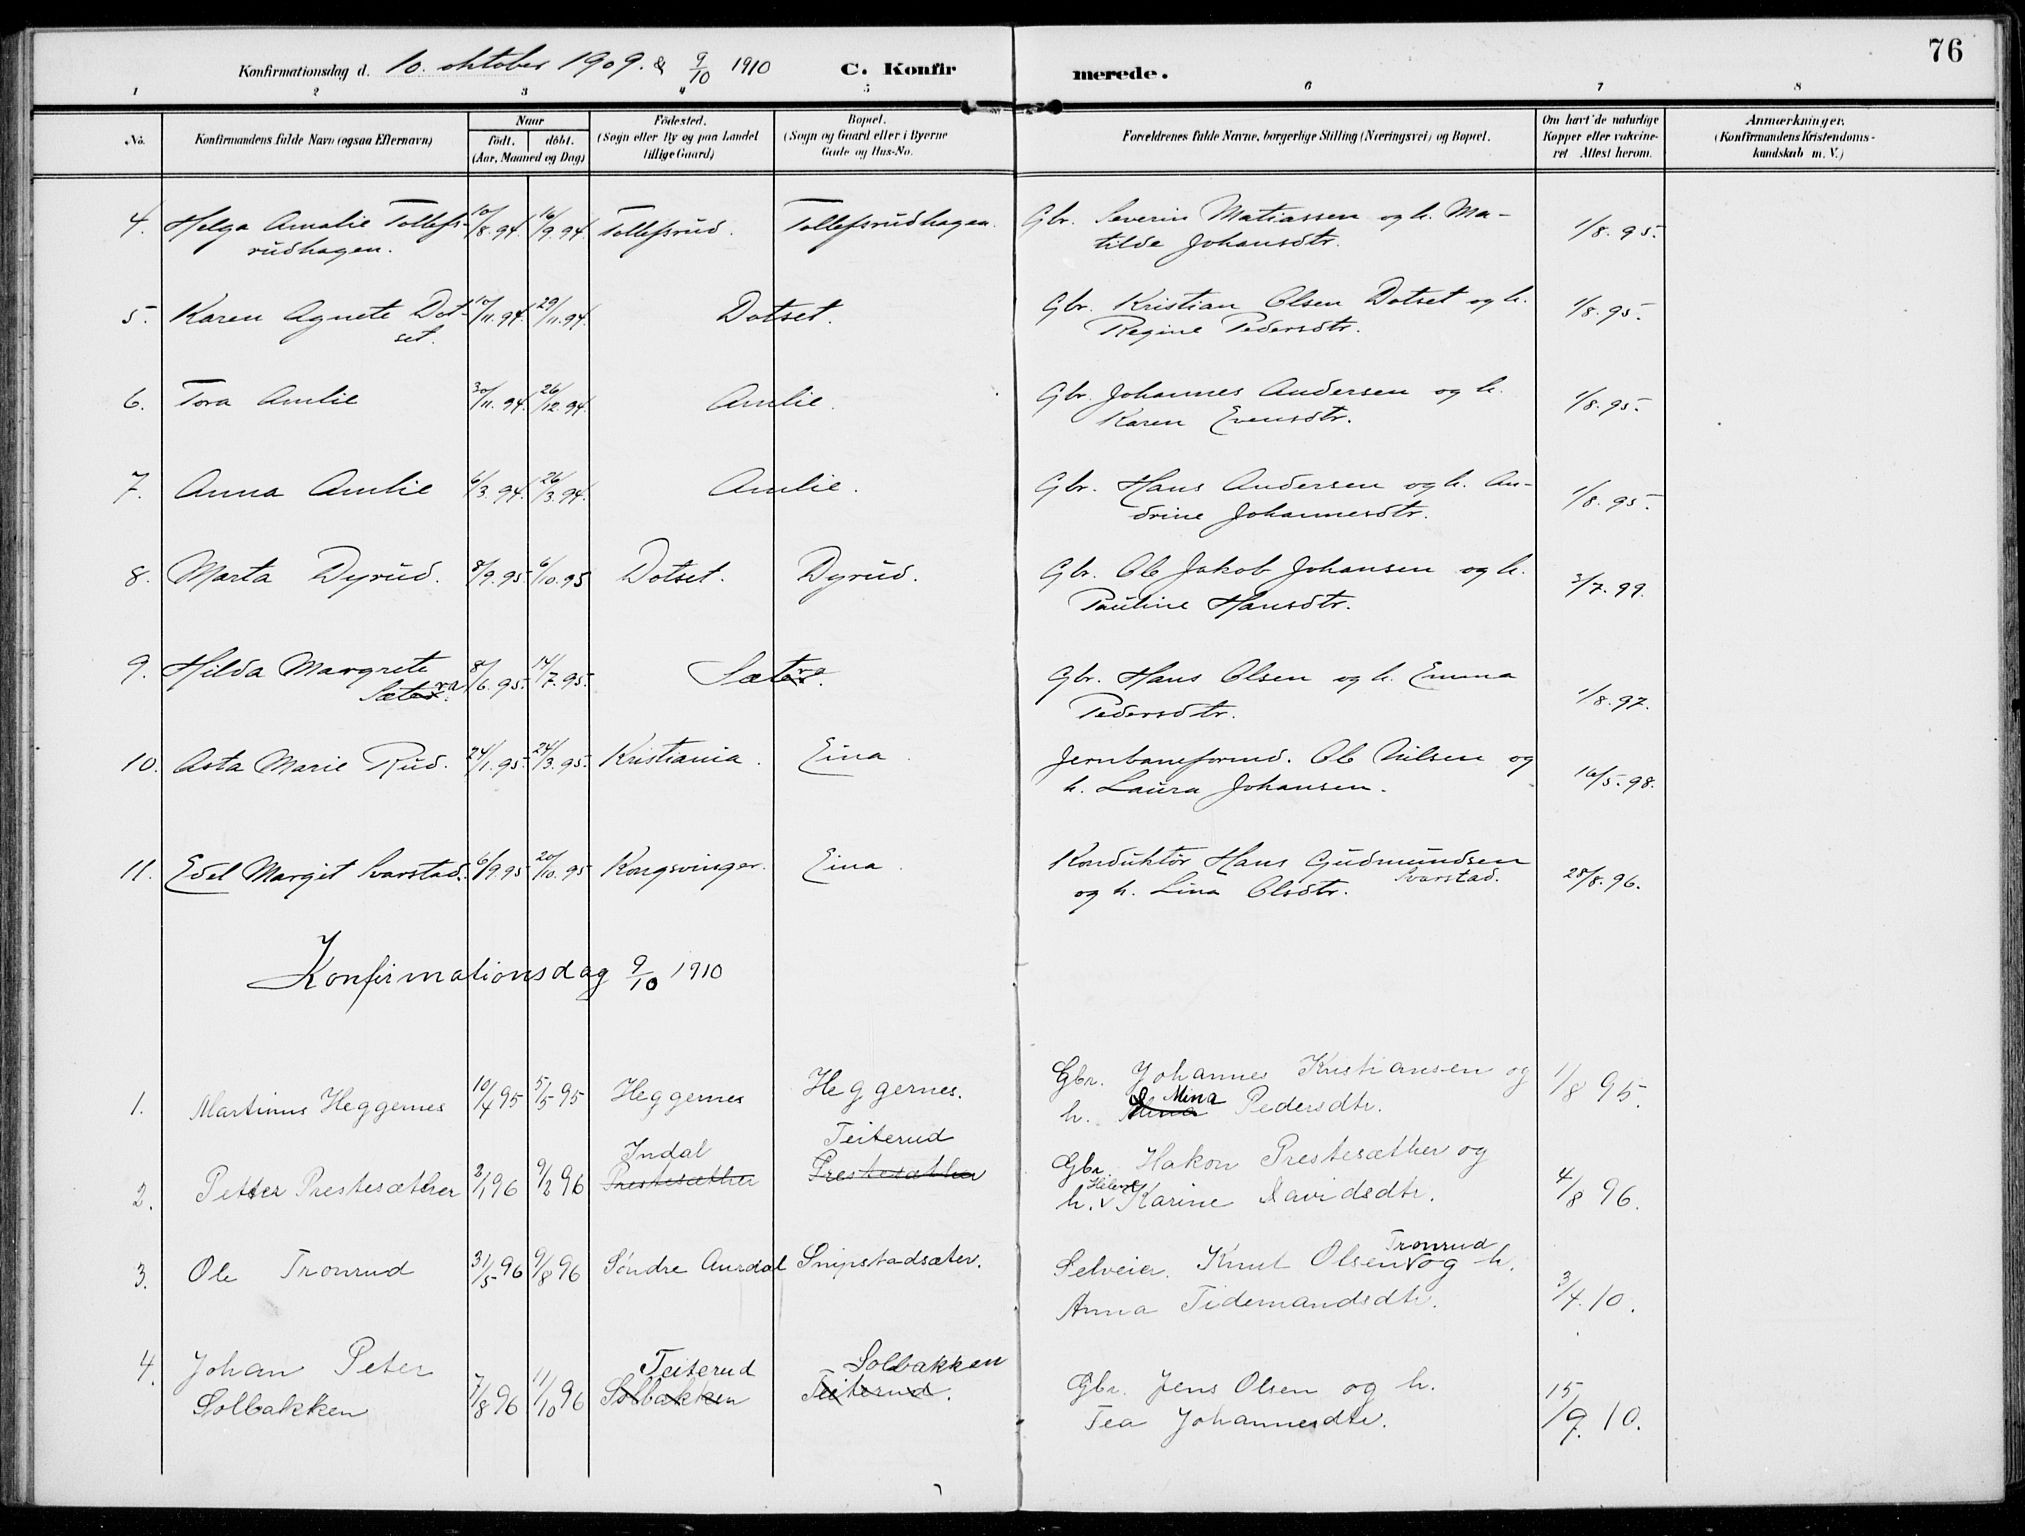 76
Konfirmationsdag d. 10. oktober 1909. & 9/10 1910 C. Konfirmerede.
1 2 3 4 5 6 7 8
No.
Konfirmandens fulde Navn (ogsaa Efternavn)
Naar
født. døbt.
(Aar, Maaned og Dag)
Fødested.
(Sogn eller By og paa Landet
tillige Gaard)
Bopæl.
(Sogn og Gaard eller i Byerne
Gade og Hus-No.
Forældrenes fulde Navne, borgerlige Stilling (Næringsvei) og Bopæl.
Om havt de naturlige
Kopper eller vakcine-
ret Attest herom.
Anmærkninger.
(Konfirmandens Kristendoms-
kundskab m. V.)
4. Helga Amalie Tollefs- 10/8. 94. 16/9. 94. Tollefsrud. Tollefsrudhagen. Gbr. Severin Matiassen og h. Ma- 1/8. 95.
rudhagen. tilde Johansdtr.
5. Karen Agnete Dot- 10/11. 94. 29/11. 94. Dotset. Gbr. Kristian Olsen Dotset og h. 1/8. 95.
set. Regine Pedersdtr.
6. Tora Amlie 30/11. 94. 26/12. 94. Amlie. Gbr. Johannes Andersen og h. 1/8. 95.
Karen Evensdtr.
7. Anna Amlie 6/3. 94. 26/3. 94. Amlie. Gbr. Hans Andersen og h. An- 1/8. 95.
drine Johannesdtr.
8. Marta Dyrud. 8/9. 95. 6/10. 95 Dotset. Dyrud. Gbr. Ole Jakob Johansen og h. 3/7. 99.
Pauline Hansdtr.
9. Hilda Margrete 8/6. 95. 14/7. 95. Sætra. Gbr. Hans Olsen og h. Emma 1/8. 97.
Sætra. Pedersdtr.
10. Asta Marie Rud. 24/1. 95. 24/3. 95. Kristiania. Eina. Jernbaneformd. Ole Nilsen og 16/5. 98.
h. Laura Johansen.
11. Edel Margit Svarstad. 6/9 95 20/10. 95 Kongsvinger. Eina. Konduktør Hans Gudmundsen 28/8. 96.
og h. Lina Olsdtr. Svarstad.
Konfirmationsdag 9/10 1910
1. Martinus Heggernes 10/4 95 5/5 95 Heggernes Heggernes. Gbr. Johannes Kristiansen og 1/8 95.
h. Mina Pedersdtr.
Indal Teiterud
2. Petter Prestesæther 2/1 96 9/2 96 Prestesæther Prestesæther Gbr. Hakon Prestesæther og 4/8 96.
h. Helene Karine Davidsdtr.
3. Ole Tronrud 31/5 96 9/8 96 Søndre Aurdal Snipstadsæter. Selveier. Knut Olsen Tronrud og h. 3/4. 10.
Anna Tidemandsdtr.
4. Johan Peter Teiterud Solbakken
Solbakken 7/8 96 11/10 96 Solbakken Teiterud. Gbr. Jens Olsen og h. 15/9. 10.
Tea Johannesdtr.